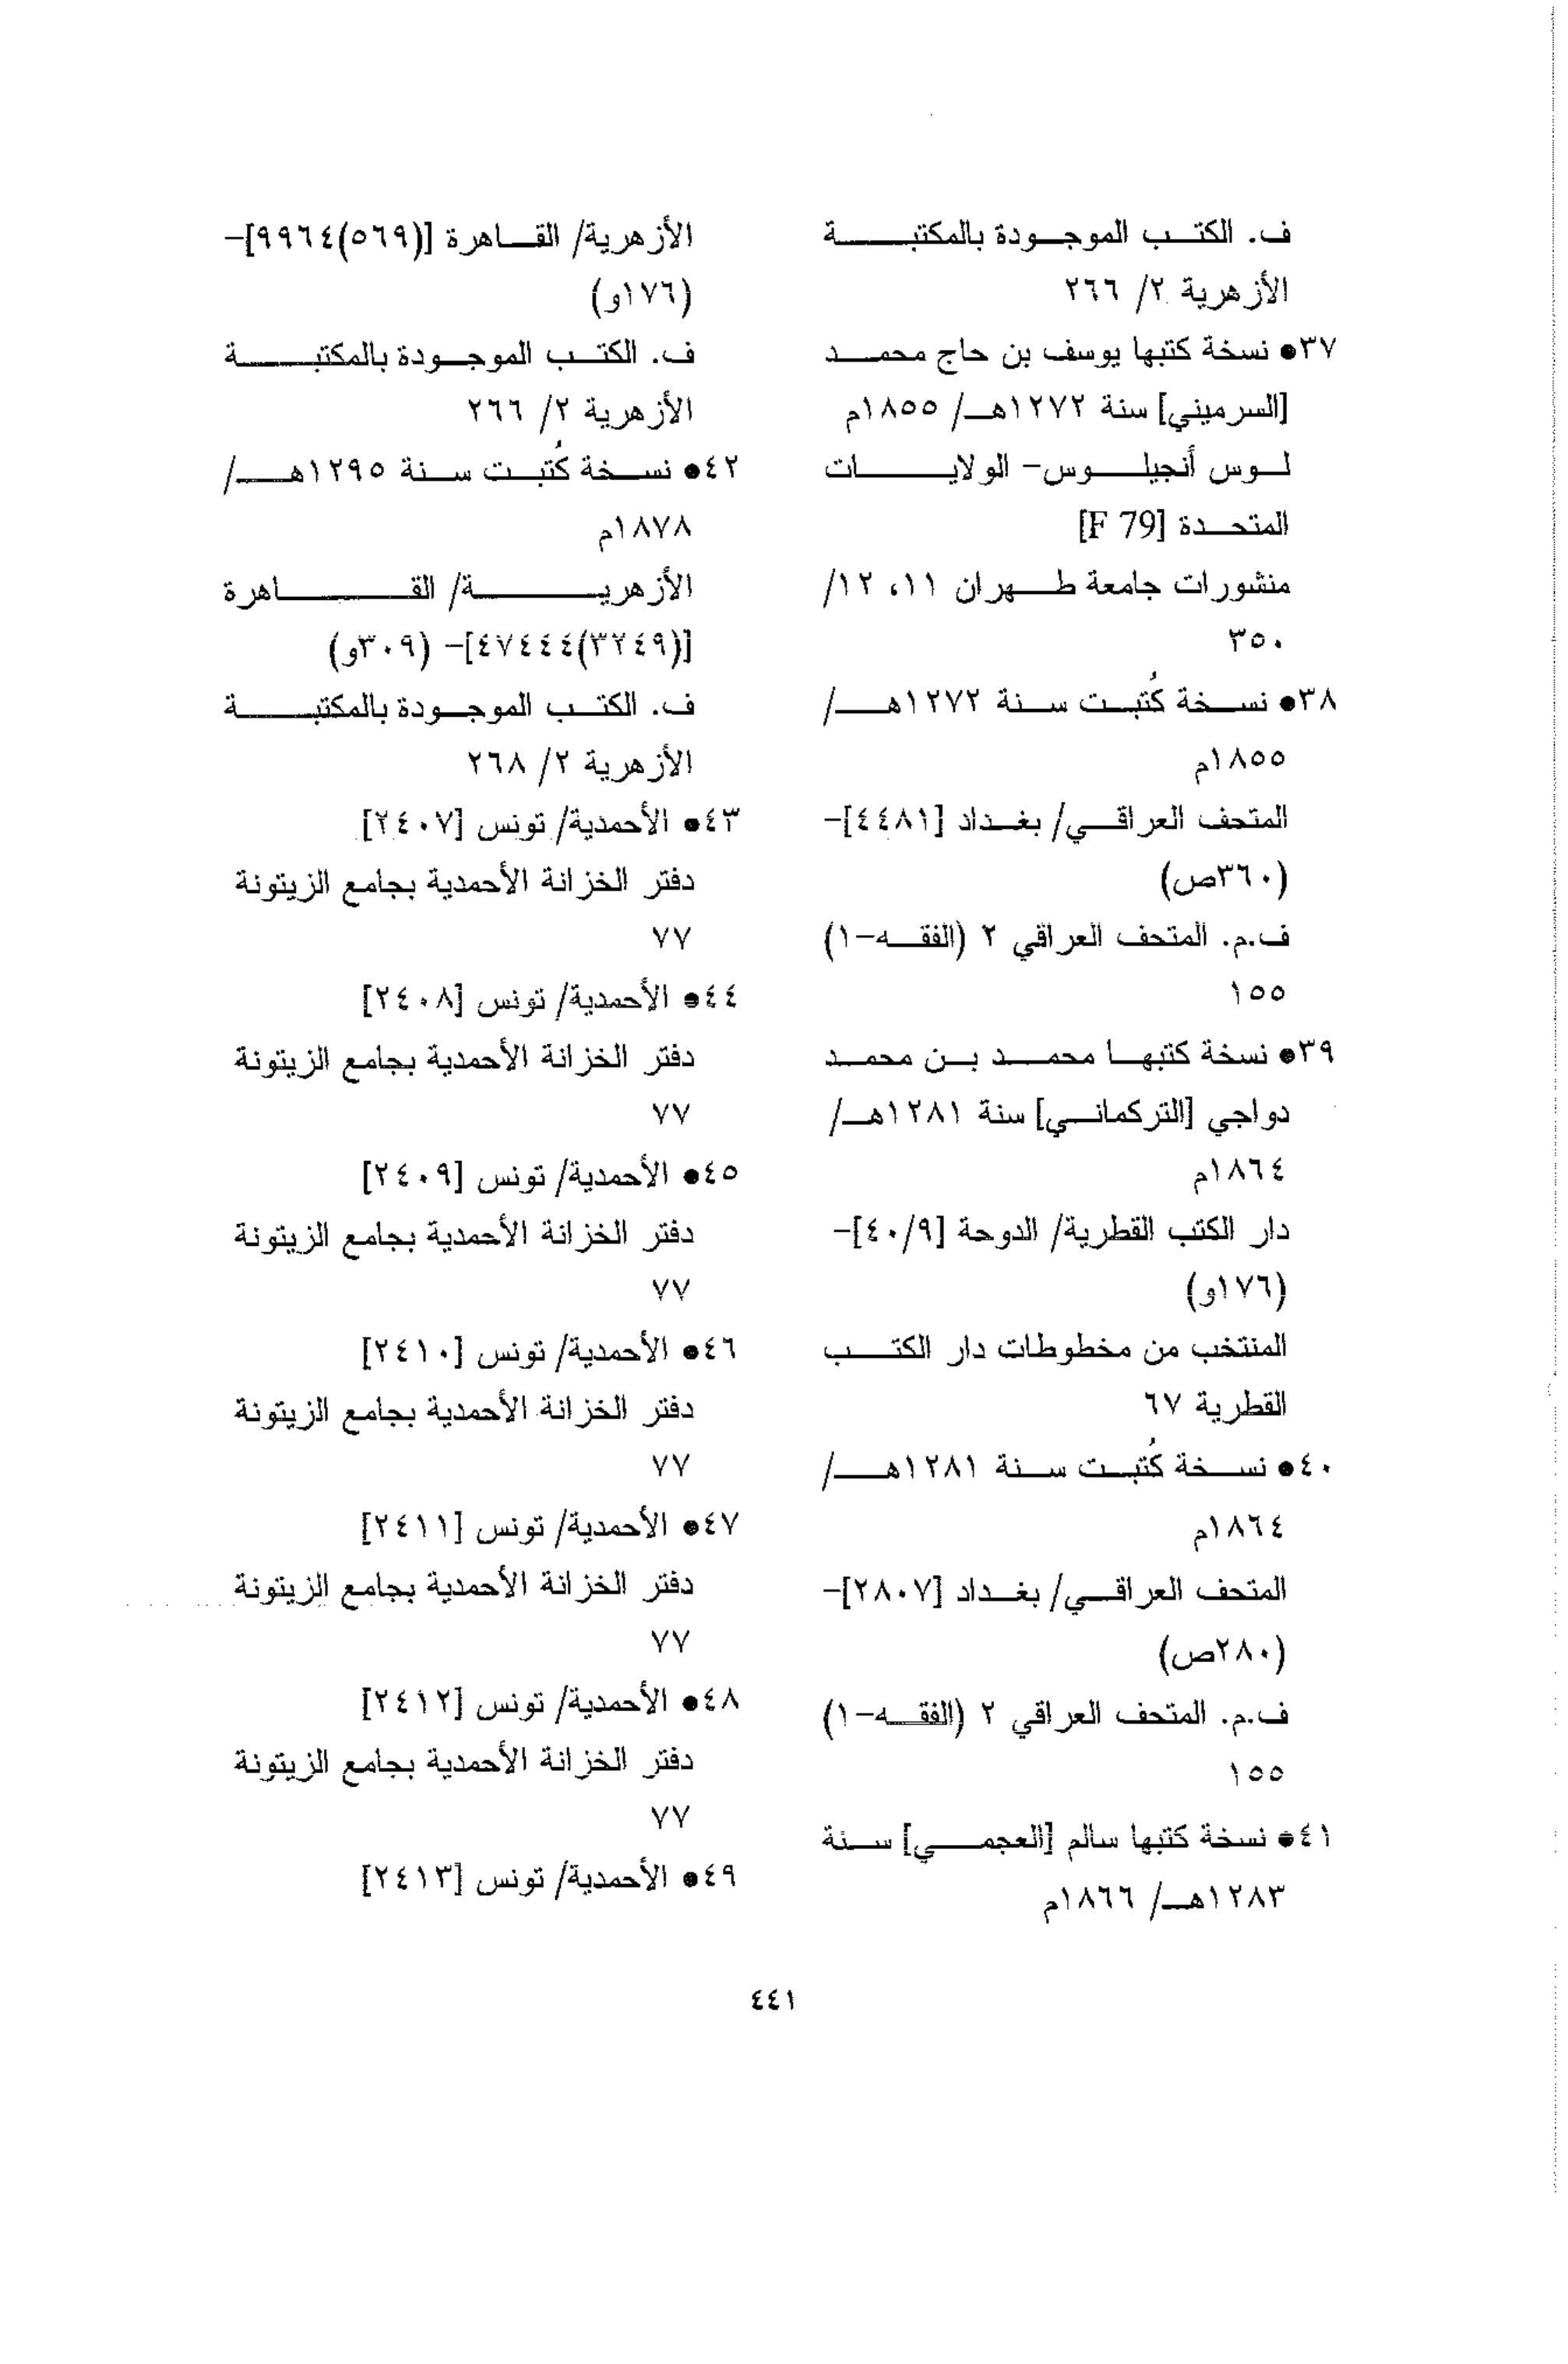 ف. الكتب الموجودة بالمكتبة
الأزهرية ٢/ ٢٦٦
٣٧● نسخة كتبها يوسف بن حاج محمد
[السرميني] سنة ١٢٧٢هـ/ ١٨٥٥م
لوس أنجيلوس- الولايات
المتحدة [F 79]
منشورات جامعة طهران ١١، ١٢/
٣٥٠
٣٨● نسخة كُتبت سنة ١٢٧٢هـ/
١٨٥٥م
المتحف العراقي/ بغداد [٤٤٨١]-
(٣٦٠ص)
ف.م. المتحف العراقي ٢ (الفقه-١)
١٥٥
٣٩● نسخة كتبها محمد بن محمد
دواجي [التركماني] سنة ١٢٨١هـ/
١٨٦٤م
دار الكتب القطرية/ الدوحة [٤٠/٩]-
(١٧٦و)
المنتخب من مخطوطات دار الكتب
القطرية ٦٧
٤٠● نسخة كُتبت سنة ١٢٨١هـ/
١٨٦٤م
المتحف العراقي/ بغداد [٢٨٠٧]-
(٢٨٠ص)
ف.م. المتحف العراقي ٢ (الفقه-١)
١٥٥
٤١● نسخة كتبها سالم [العجمي] سنة
١٢٨٣هـ/ ١٨٦٦م
الأزهرية/ القاهرة [(٥٦٩)٩٩٦٤]-
(١٧٦و)
ف. الكتب الموجودة بالمكتبة
الأزهرية ٢/ ٢٦٦
٤٢● نسخة كُتبت سنة ١٢٩٥هـ/
١٨٧٨م
الأزهرية/ القاهرة
[(٣٢٤٩)٤٧٤٤٤]- (٣٠٩و)
ف. الكتب الموجودة بالمكتبة
الأزهرية ٢/ ٢٦٨
٤٣● الأحمدية/ تونس [٢٤٠٧]
دفتر الخزانة الأحمدية بجامع الزيتونة
٧٧
٤٤● الأحمدية/ تونس [٢٤٠٨]
دفتر الخزانة الأحمدية بجامع الزيتونة
٧٧
٤٥● الأحمدية/ تونس [٢٤٠٩]
دفتر الخزانة الأحمدية بجامع الزيتونة
٧٧
٤٦● الأحمدية/ تونس [٢٤١٠]
دفتر الخزانة الأحمدية بجامع الزيتونة
٧٧
٤٧● الأحمدية/ تونس [٢٤١١]
دفتر الخزانة الأحمدية بجامع الزيتونة
٧٧
٤٨● الأحمدية/ تونس [٢٤١٢]
دفتر الخزانة الأحمدية بجامع الزيتونة
٧٧
٤٩● الأحمدية/ تونس [٢٤١٣]
٤٤١